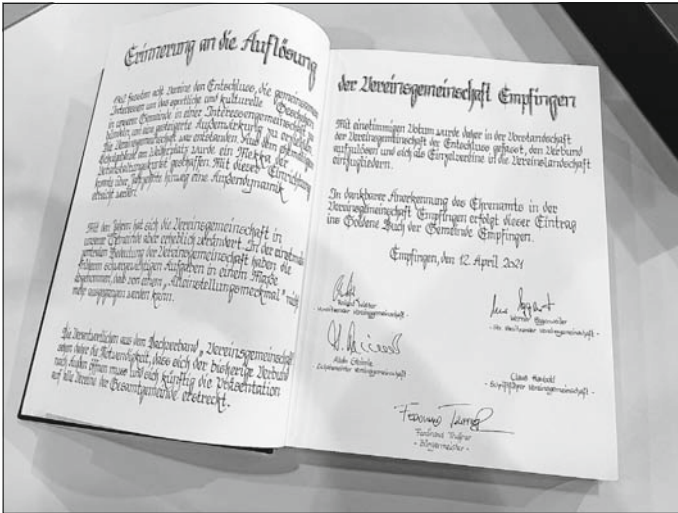 Erinnerung an die Auflösung
fassten acht Vereine den Entschluss, die gemeinsamen
Interessen um das sportliche und kulturelle Geschehen
in unserer Gemeinde in einer Interessengemeinschaft zu
bündeln, um eine gesteigerte Außenwirkung zu erzielen.
Die Vereinsgemeinschaft war entstanden. Aus dem ehemaligen
Schulgebäude am Weiherplatz wurde ein Mekka der
Veranstaltungskultur geschaffen. Mit dieser Einrichtung
konnte über Jahrzehnte hinweg eine Außendynamik
erreicht werden.
Mit den Jahren hat sich die Vereinsgemeinschaft in
unserer Gemeinde aber erheblich verändert. In der einstmals
zentralen Bedeutung der Vereinsgemeinschaft haben die
früheren schwergewichtigen Aufgaben in einem Maße
abgenommen, daß von einem „Alleinstellungsmerkmal" nicht
mehr ausgegangen werden kann.
Die Verantwortlichen aus dem Dachverband „Vereinsgemeinschaft
sahen daher die Notwendigkeit, dass sich der bisherige Verbund
nach außen öffnen muss und sich künftig die Präsentation
auf alle Vereine der Gesamtgemeinde erstreckt.
der Vereinsgemeinschaft Empfingen
Mit einstimmigen Votum wurde daher in der Vorstandschaft
der Vereinsgemeinschaft der Entschluss gefasst, den Verbund
aufzulösen und sich als Einzelvereine in die Vereinslandschaft
einzugliedern.
In dankbarer Anerkennung des Ehrenamts in der
Vereinsgemeinschaft Empfingen erfolgt dieser Eintrag
ins Goldene Buch der Gemeinde Empfingen.
Empfingen, den 12. April 2021
- Vorsitzender Vereinsgemeinschaft -
Werner
- Stv. Vorsitzender Vereinsgemeinschaft -
Alois
Vereinsgemeinschaft -
Claus
- Schriftführer Vereinsgemeinschaft -
Ferdinand Truffner
- Bürgermeister -